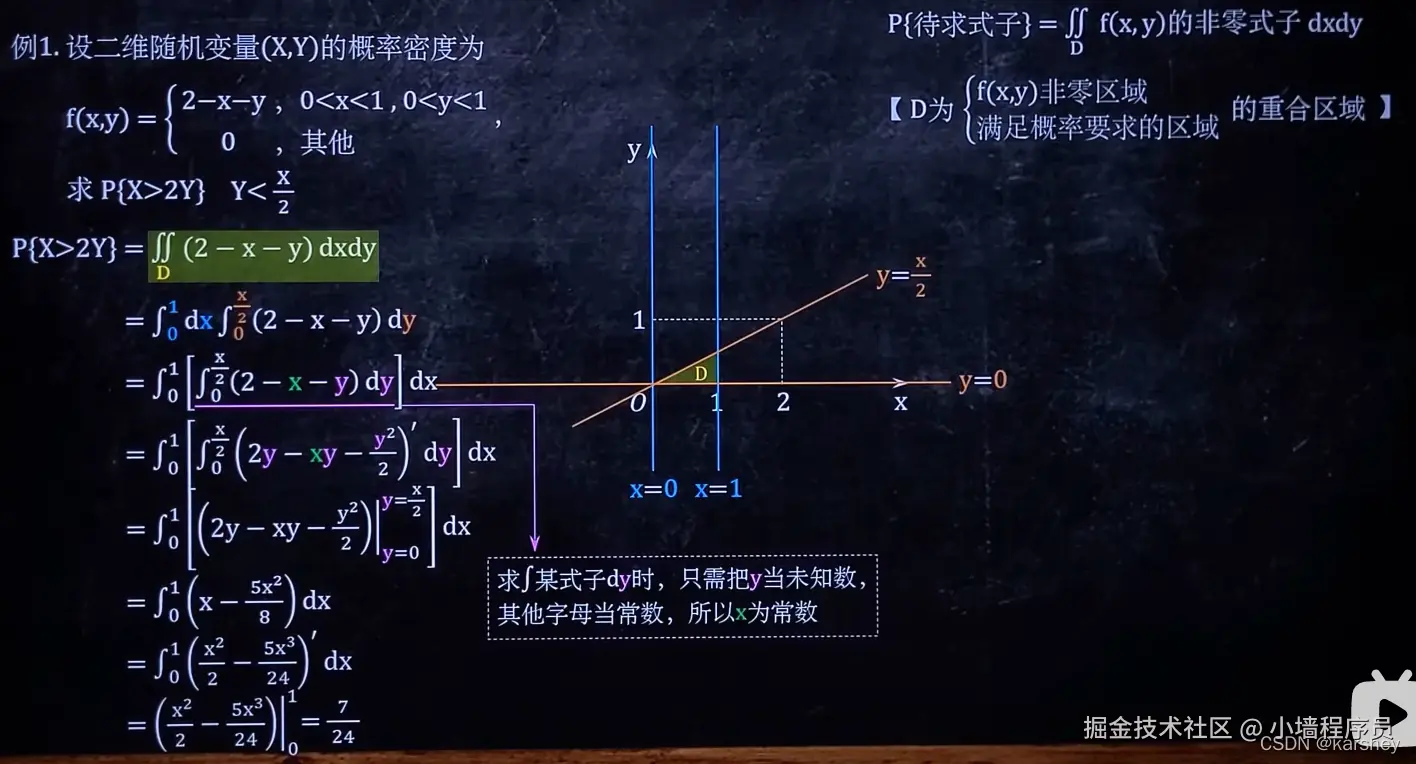 例1. 设二维随机变量(X,Y)的概率密度为
f(x,y) = { 2−x−y , 0<x<1 , 0<y<1
0 , 其他 ,
求 P{X>2Y} Y< x/2
P{X>2Y} = ∬_D (2 − x − y) dxdy
= ∫_0^1 dx ∫_0^{x/2} (2 − x − y) dy
= ∫_0^1 [ ∫_0^{x/2} (2 − x − y) dy ] dx
= ∫_0^1 [ ∫_0^{x/2} (2y − xy − y²/2)′ dy ] dx
= ∫_0^1 [ (2y − xy − y²/2) |_{y=0}^{y=x/2} ] dx
= ∫_0^1 (x − 5x²/8) dx
= ∫_0^1 (x²/2 − 5x³/24)′ dx
= (x²/2 − 5x³/24) |_0^1 = 7/24
P{待求式子} = ∬_D f(x,y)的非零式子 dxdy
【 D为 { f(x,y)非零区域
满足概率要求的区域 的重合区域 】
y
y= x/2
1
D
y=0
O 1 2 x
x=0 x=1
求∫某式子dy时，只需把y当未知数，
其他字母当常数，所以x为常数
掘金技术社区 @ 小墙程序员
CSDN @karshey